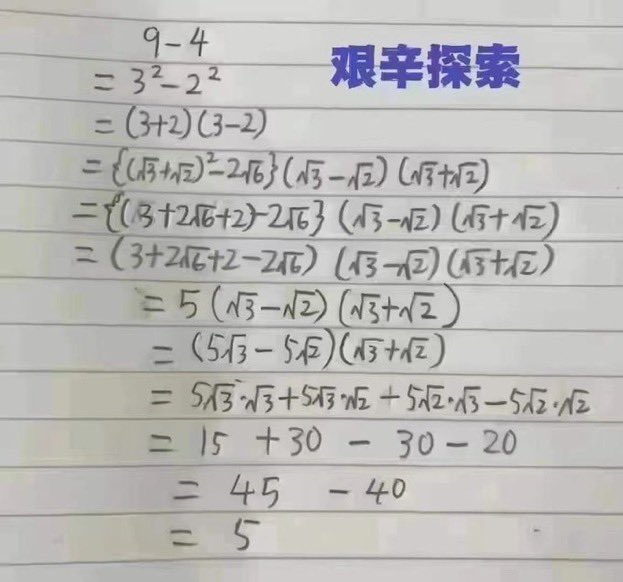 9-4
艰辛探索
= 3²-2²
= (3+2)(3-2)
= {(√3+√2)²-2√6}(√3-√2)(√3+√2)
= {(3+2√6+2)-2√6}(√3-√2)(√3+√2)
= (3+2√6+2-2√6)(√3-√2)(√3+√2)
= 5(√3-√2)(√3+√2)
= (5√3-5√2)(√3+√2)
= 5√3·√3+5√3·√2+5√2·√3-5√2·√2
= 15+30-30-20
= 45-40
= 5